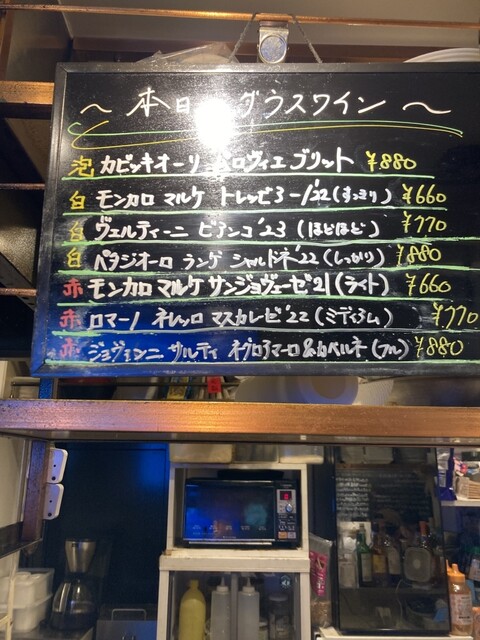 ～ 本日 グラスワイン ～
泡 カビッキオーリ ロヴィエ ブリット ¥880
白 モンカロ マルケ トレッビアーノ'22 (すっきり) ¥660
白 ヴェルティーニ ビアンコ'23 (ほどほど) ¥770
白 パタジオーロ ランゲ シャルドネ'22 (しっかり) ¥880
赤 モンカロ マルケ サンジョヴェーゼ'21 (ライト) ¥660
赤 ロマーノ ネレッロ マスカレーゼ'22 (ミディアム) ¥770
赤 ジョヴァンニ サルティ ネグロアマーロ&カベルネ (フル) ¥880